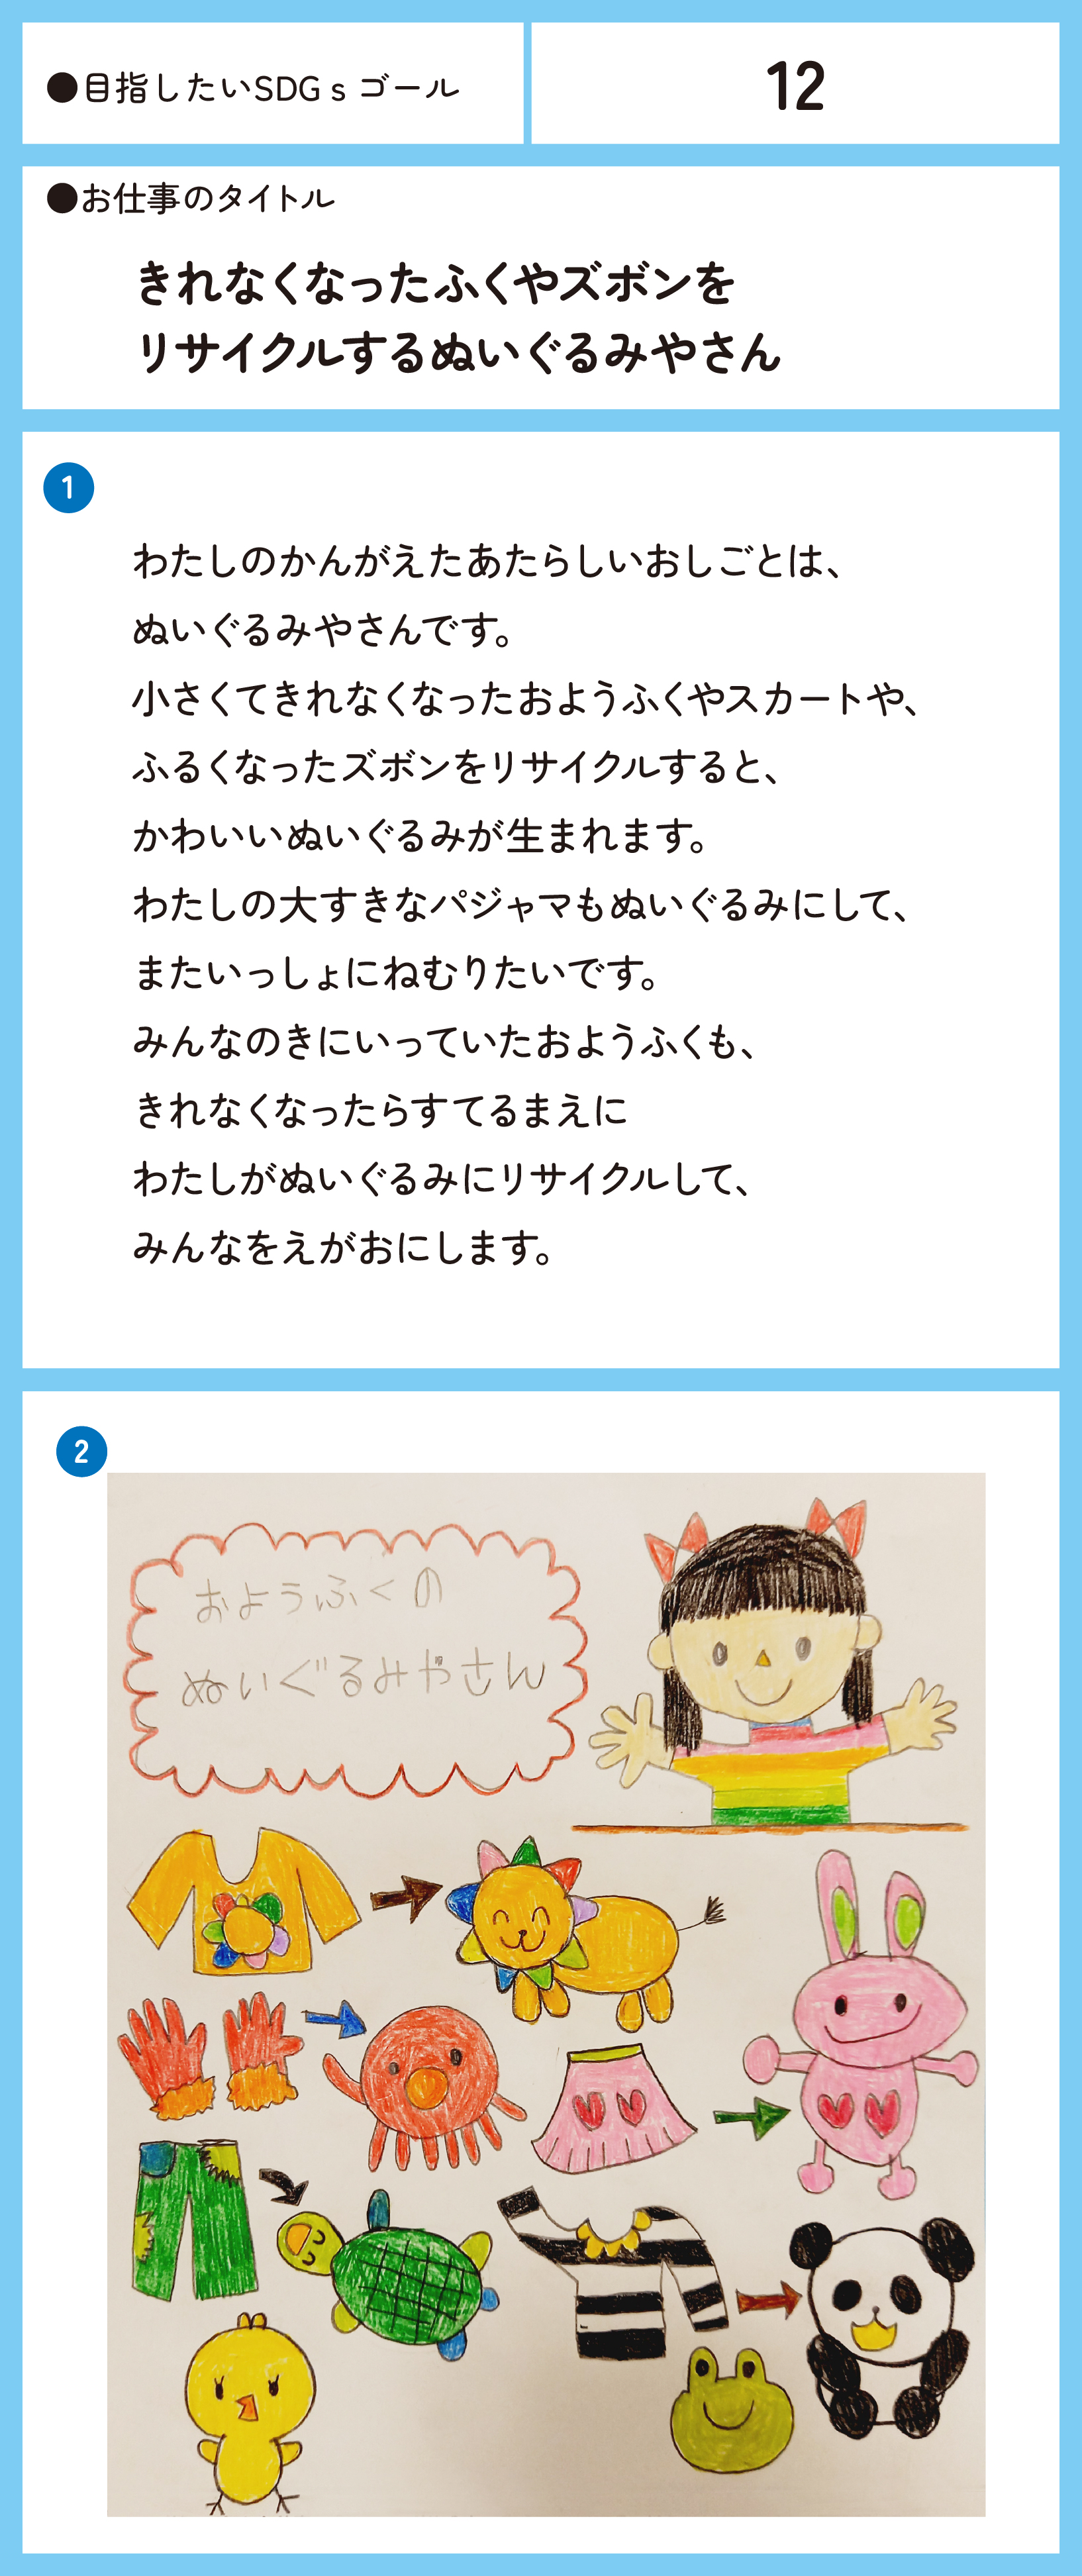 ●目指したいSDGｓゴール
12
●お仕事のタイトル
きれなくなったふくやズボンを
リサイクルするぬいぐるみやさん
1
わたしのかんがえたあたらしいおしごとは、
ぬいぐるみやさんです。
小さくてきれなくなったおようふくやスカートや、
ふるくなったズボンをリサイクルすると、
かわいいぬいぐるみが生まれます。
わたしの大すきなパジャマもぬいぐるみにして、
またいっしょにねむりたいです。
みんなのきにいっていたおようふくも、
きれなくなったらすてるまえに
わたしがぬいぐるみにリサイクルして、
みんなをえがおにします。
2
おようふくの
ぬいぐるみやさん